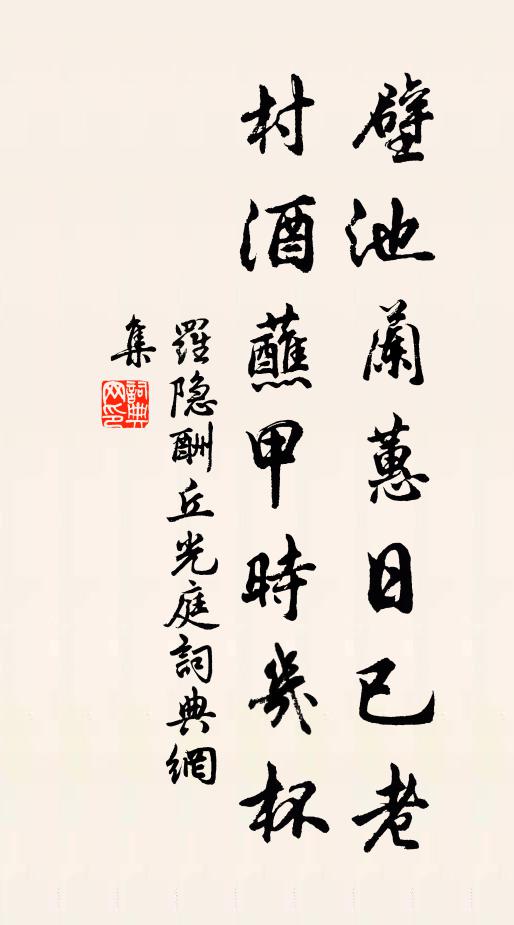 壁池蘭蕙日已老
村酒蘸甲時幾杯
羅隱酬丘光庭詞典網
集
詞典網印